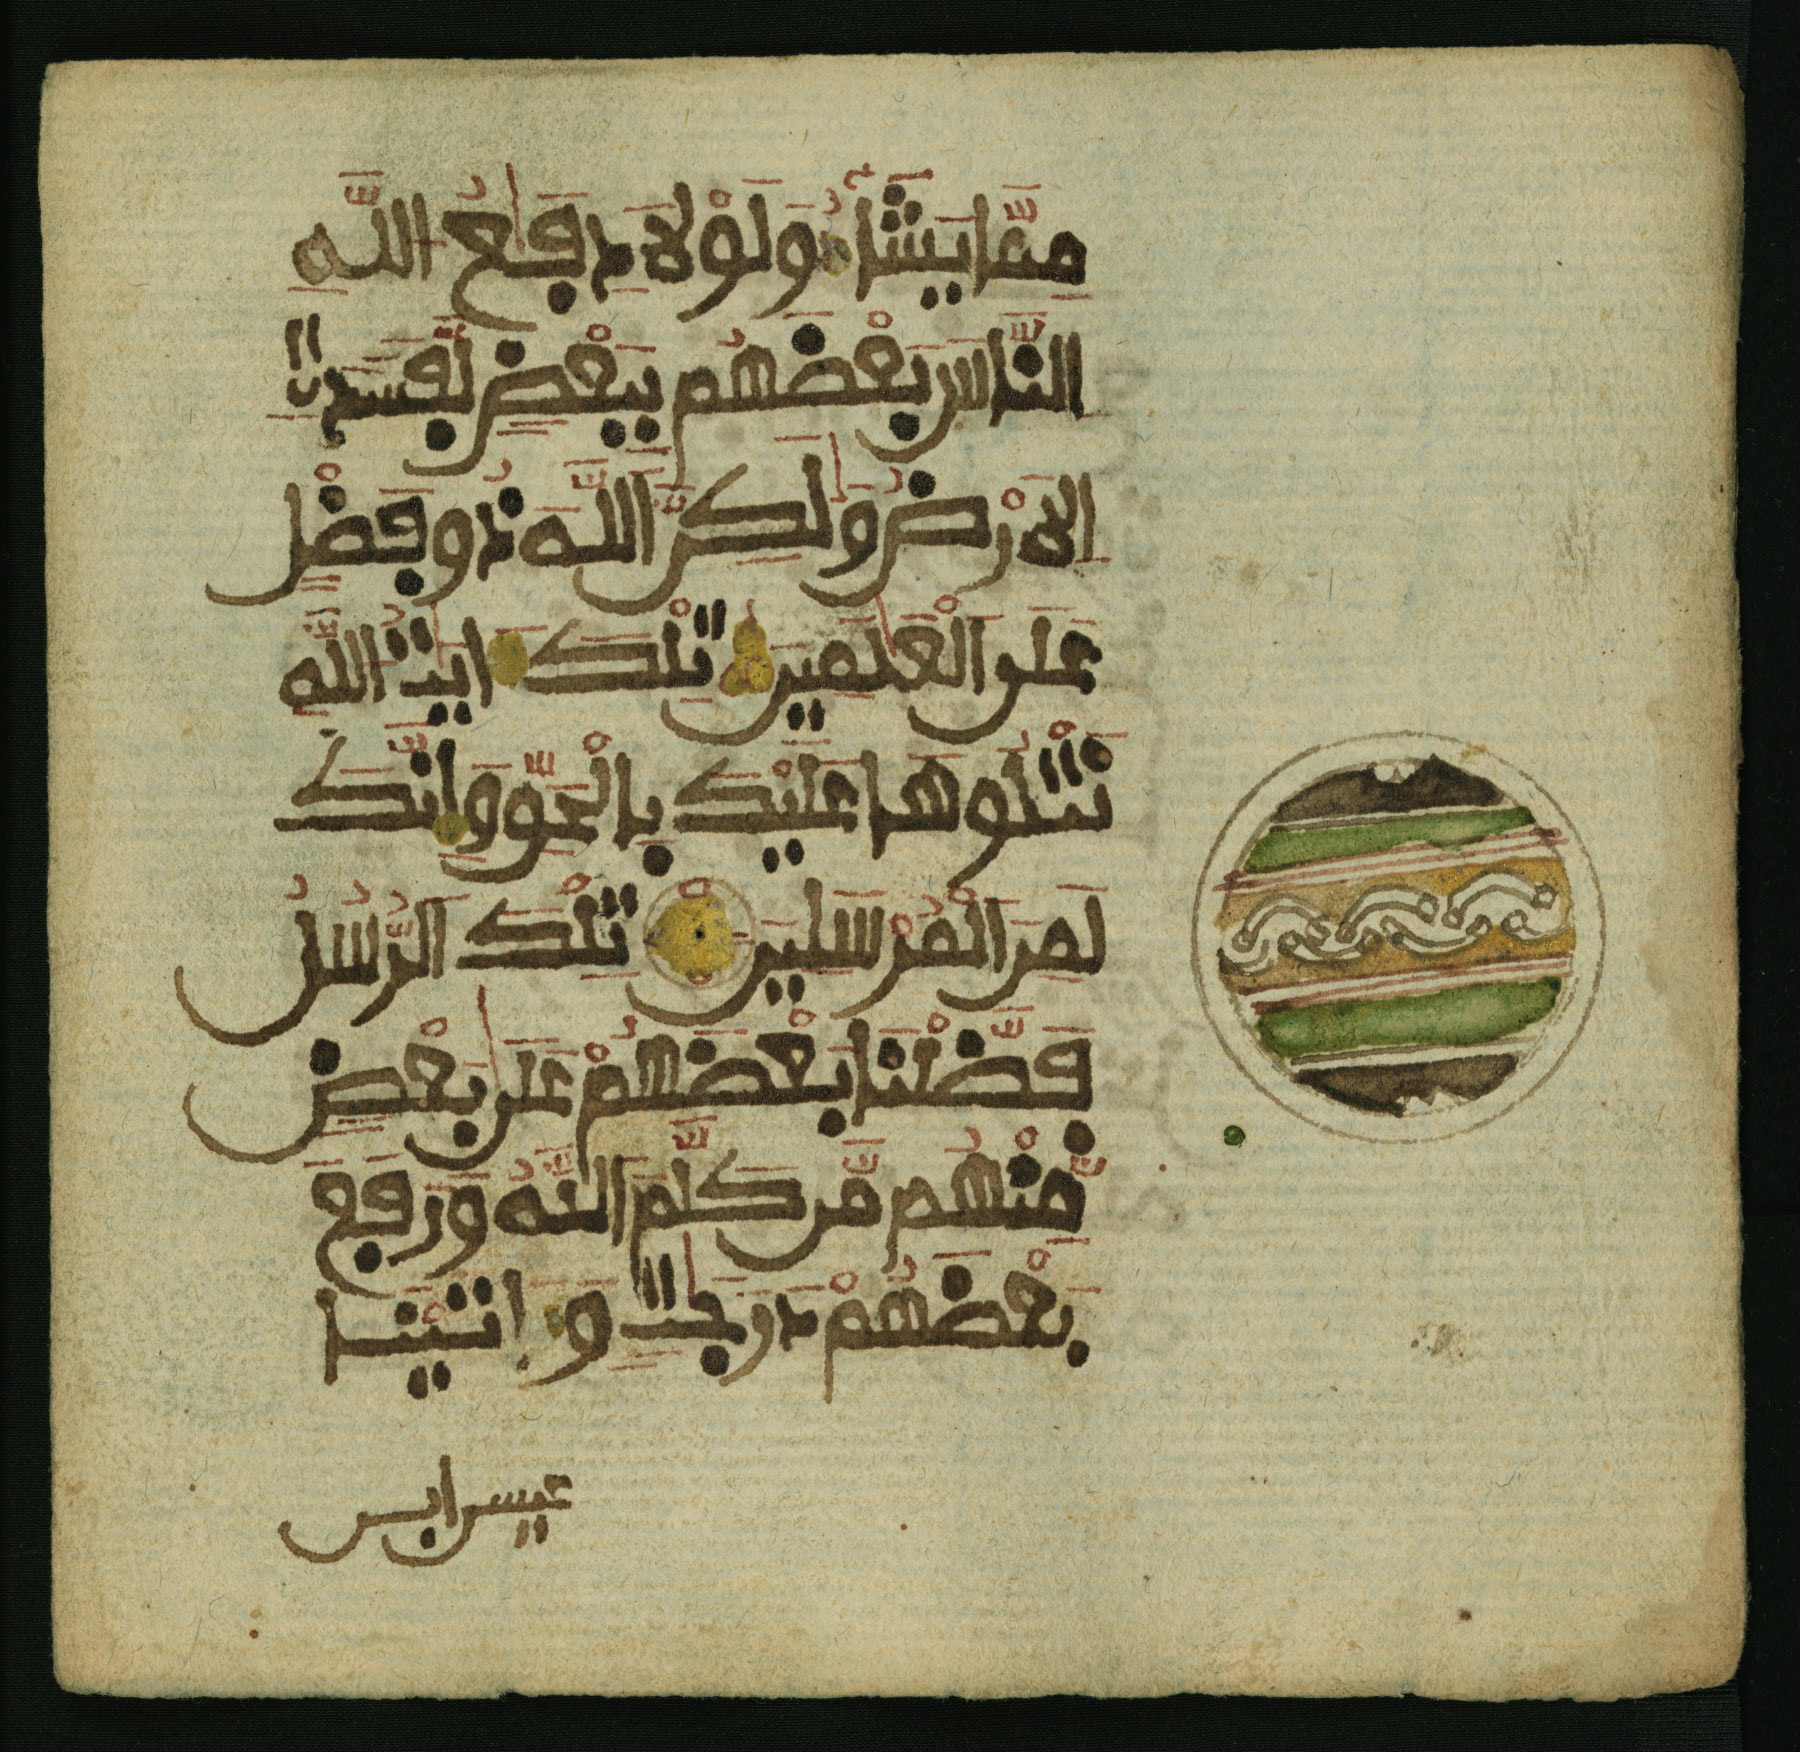 مِمَّا يَشَاءُ وَلَوْلَا دِفَٰعُ اللَّهِ
النَّاسَ بَعْضَهُم بِبَعْضٍ لَّفَسَدَتِ
الَارْضُ وَلَٰكِنَّ اللَّهَ ذُو فَضْلٍ
عَلَى الْعَٰلَمِينَ تِلْكَ ءَايَٰتُ اللَّهِ
نَتْلُوهَا عَلَيْكَ بِالْحَقِّ وَإِنَّكَ
لَمِنَ الْمُرْسَلِينَ تِلْكَ الرُّسُلُ
فَضَّلْنَا بَعْضَهُمْ عَلَىٰ بَعْضٍ
مِّنْهُم مَّن كَلَّمَ اللَّهُ وَرَفَعَ
بَعْضَهُمْ دَرَجَٰتٍ وَءَاتَيْنَا
عيسى ابن